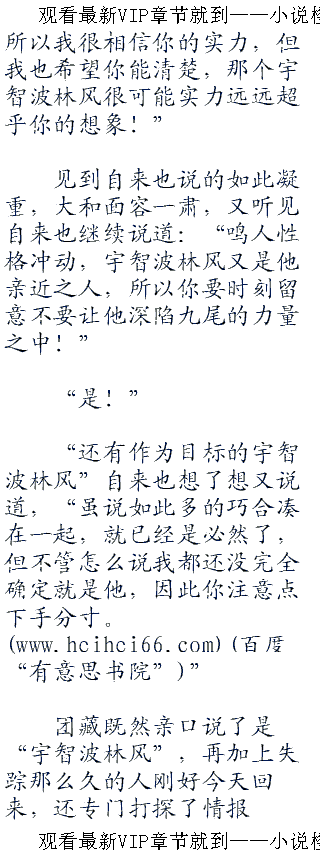 观看最新VIP章节就到——小说检
所以我很相信你的实力，但
我也希望你能清楚，那个宇
智波林风很可能实力远远超
乎你的想象！”
见到自来也说的如此凝
重，大和面容一肃，又听见
自来也继续说道：“鸣人性
格冲动，宇智波林风又是他
亲近之人，所以你要时刻留
意不要让他深陷九尾的力量
之中！”
“是！”
“还有作为目标的宇智
波林风”自来也想了想又说
道，“虽说如此多的巧合凑
在一起，就已经是必然了，
但不管怎么说我都还没完全
确定就是他，因此你注意点
下手分寸。
(www.hcihci66.com)(百度
“有意思书院”)”
团藏既然亲口说了是
“宇智波林风”，再加上失
踪那么久的人刚好今天回
来，还专门打探了情报
观看最新VIP章节就到——小说检